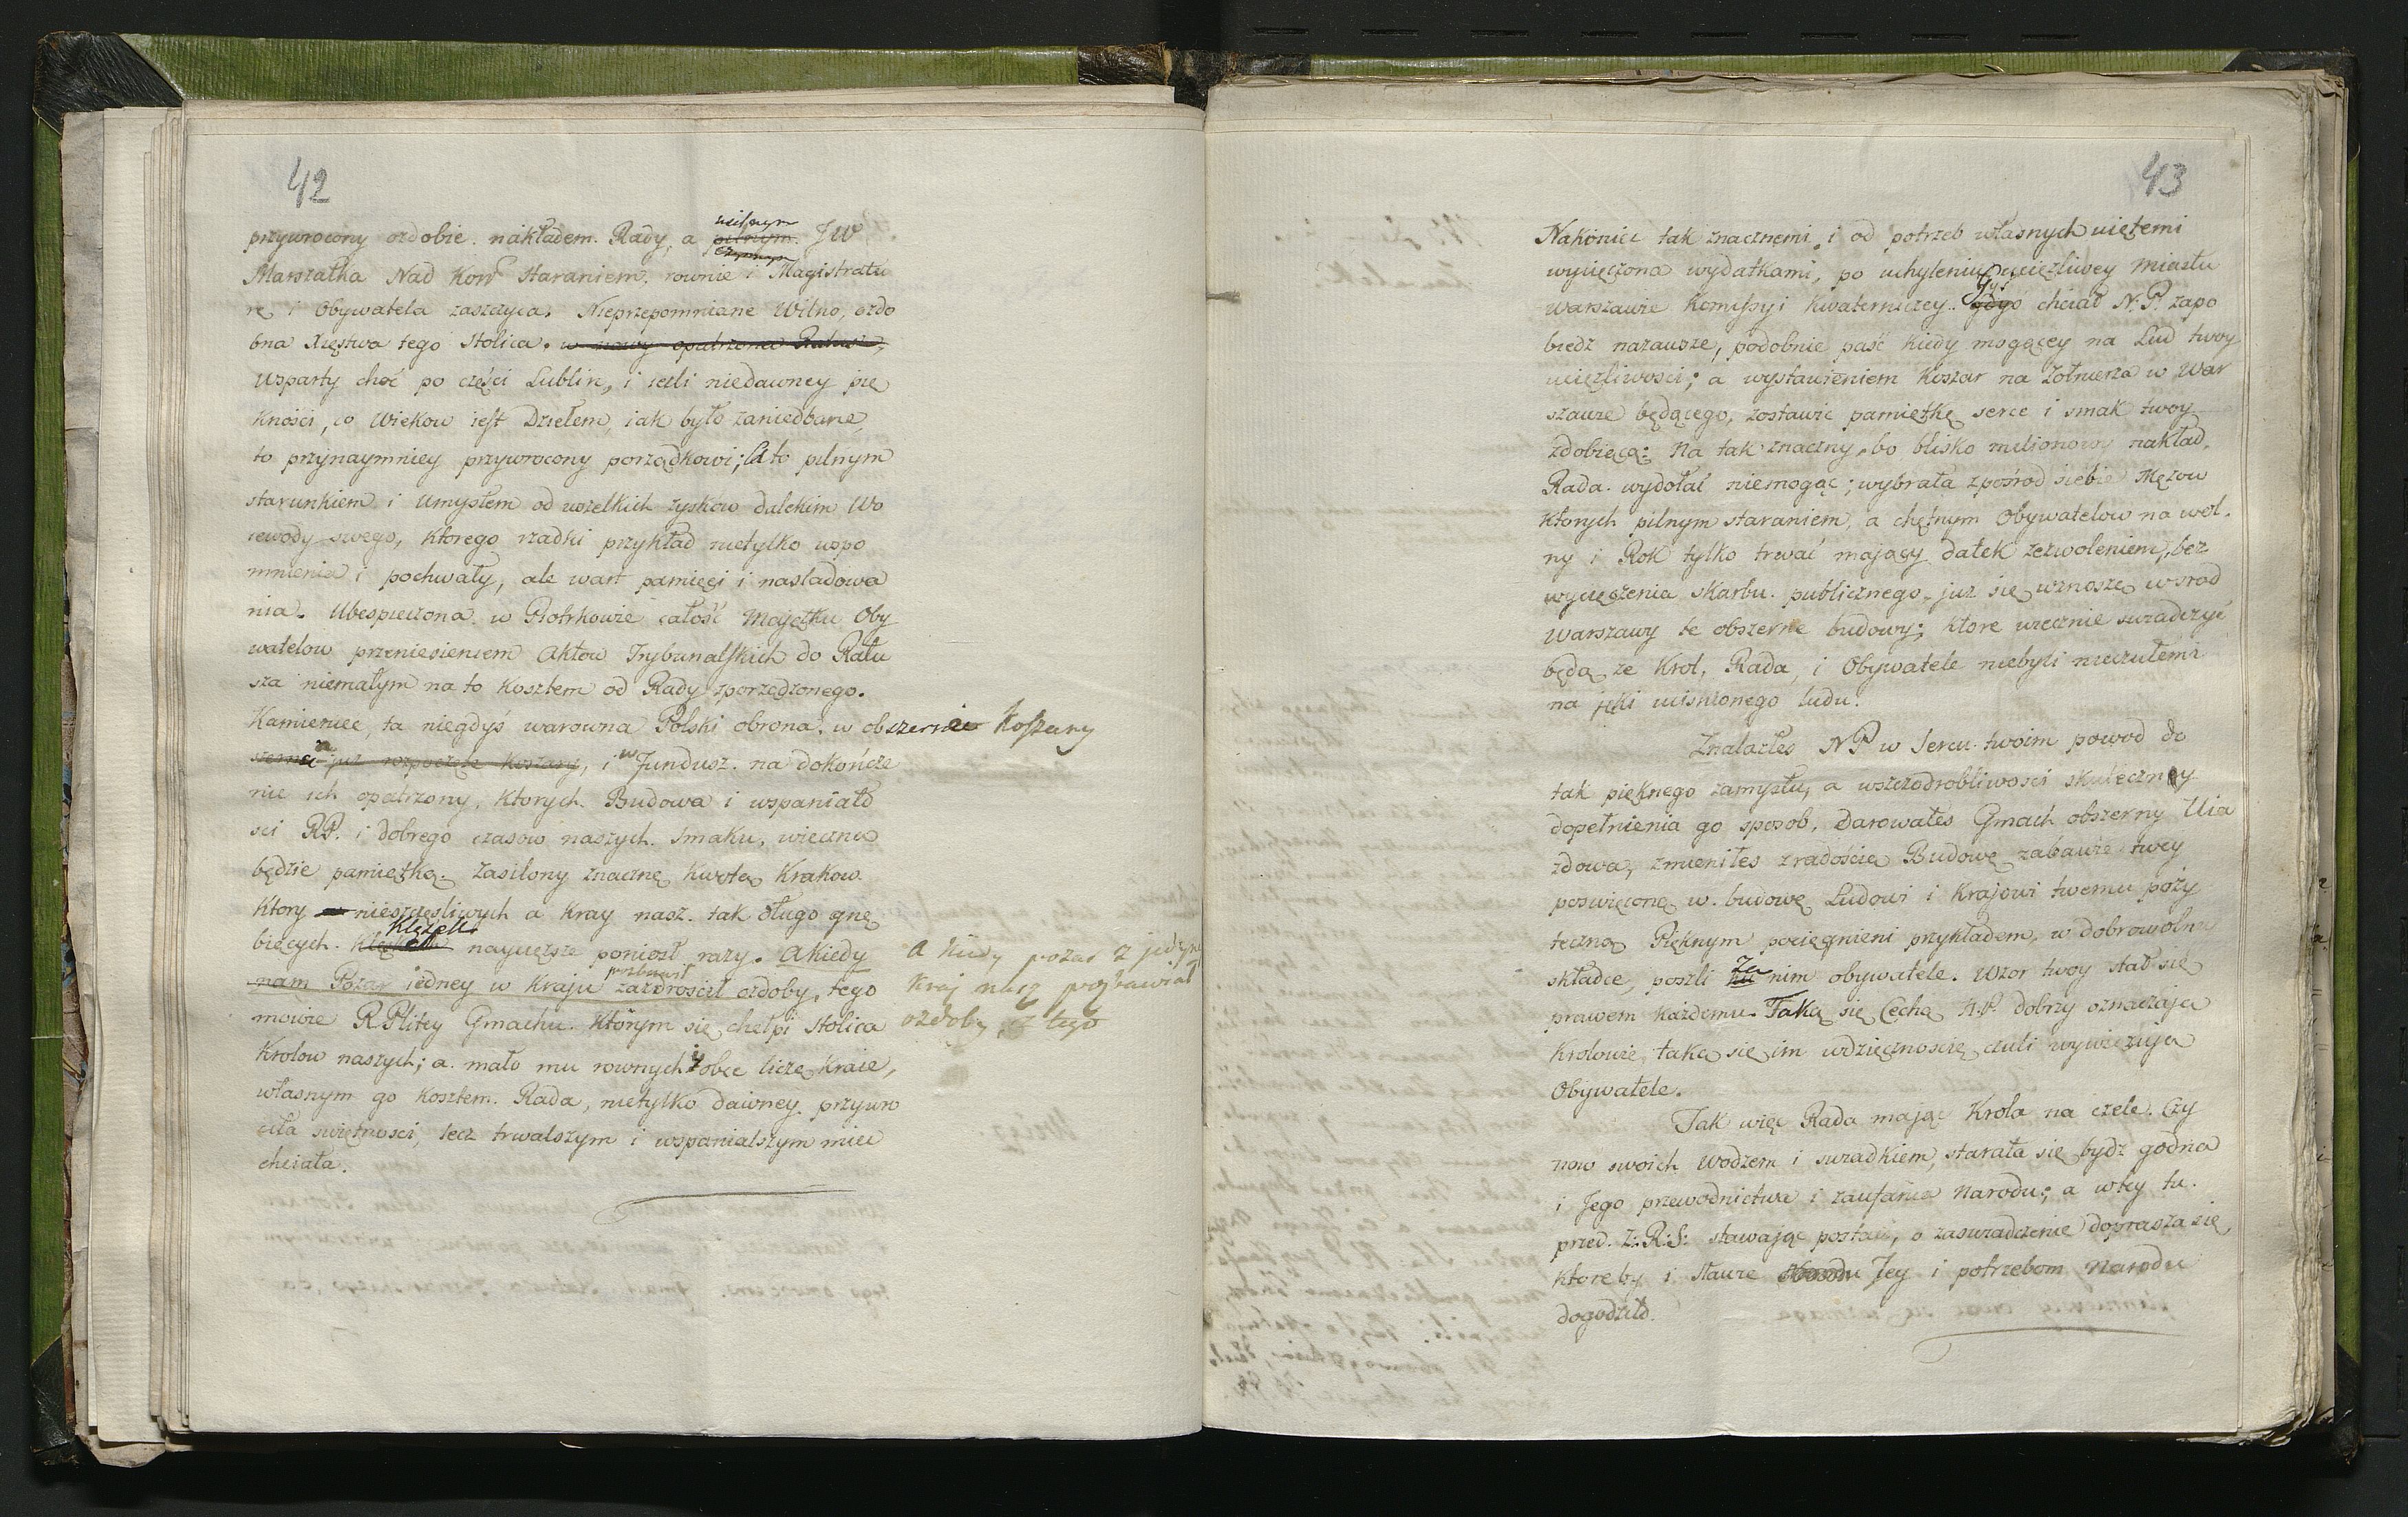 42
przywrocony ozdobie. nakładem. Rady, a usilnym JW
Marszałka Nad Kor͠o Staraniem. rownie i Magistratu
rę i Obywatela zaszczyca. Nieprzepomniane Wilno, ozdo
bna Xięstwa tego Stolica. w nowy opatrzona Ratusz,
Wsparty choć po części Lublin, i ieśli niedawney pię
kności, co Wiekow iest Dziełem, iak było zaniedbane,
to przynaymniey przywrocony porządkowi; a to pilnym
starunkiem i Umysłem od wszelkich zysków dalekim Wo
iewody swego, ktorego rzadki przykład nietylko wspo
mnienia i pochwały, ale wart pamięci i nasladowa
nia. Ubespieczona w Piotrkowie całość Majątku Oby
watelow przeniesieniem Aktow Trybunalskich do Ratu
sza niemałym na to kosztem od Rady zporządzonego.
Kamieniec, ta niegdyś warowna Polski obrona. w obszerne Koszary
szerne już rozpoczęte koszary, i w Fundusz. na dokończe
nie ich opatrzony, ktorych. Budowa i wspaniało
sci RP. i dobrego czasow naszych. smaku, wieczna
będzie pamiętką. Zasilony znaczną kwotą Krakow
ktory w nieszczęśliwych a Kray nasz. tak długo gnę
biących. Klęskach nayuięższe poniosł razy. A kiedy
nam Pożar iedney w Kraju pozbawił zazdroscił ozdoby, tego
A kiedy pożar z jedyney
Kraj nasz pozbawiał
ozdoby, z tego
mowie R. Plitey Gmachu. Ktorym się chełpi Stolica
Krolow naszych; a. mało mu rownych i obce liczą kraie,
własnym go kosztem. Rada, nietylko dawney. przywro
ciła swiętnosci, lecz trwalszym i wspanialszym miec
chciała.
43
Nakoniec tak znacznemi, i od potrzeb własnych uiętemi
wycięczona wydatkami, po uchyleniu uciążliwey Miastu
Warszawie Komissyi Kwaterniczey. Gdyś chciał N. P. zapo
biedz nazawsze, podobnie paść kiedy mogącey na Lud twoy
uciążliwości; a wystawieniem Koszar na Żołnierza w War
szawie będącego, zostawić pamiątkę serce i smak twoy
zdobiącą: Na tak znaczny, bo blisko milionowy nakład,
Rada. wydołać niemogąc; wybrała zpośrod siebie Mężow
Ktorych pilnym staraniem, a chętnym Obywatelow na wol-
ny i Rok tylko trwać mający datek zezwoleniem, bez
wyciączenia skarbu. publicznego, już się wznoszą wsrod
Warszawy te obszerne budowy; ktore wiecznie swiadczyć
będą że Krol, Rada, i Obywatele niebyli nieczułemi
na jęki ucisnionego ludu.
Znalazłes N P w Sercu twoim powod do
tak pięknego zamysłu, a wszczodrobliwosci skuteczny
dopełnienia go sposob. Darowałeś Gmach obszerny Uia
zdowa, zmieniłes z radością Budowę zabawie twey
poswięconą w. budowę Ludowi i Krajowi twemu poży
teczną Pięknym pociągnieni przykładem, w dobrowolney
składce, poszli za nim obywatele. Wzor twoy stał się
prawem każdemu. Taką się Cechą N. P. dobrzy oznaczają
Krolowie, taką się im wdzięcznoscią czuli wywięzują
Obywatele.
Tak więc Rada mając Krola na czele. Czy
now swoich Wodzem i swiadkiem, starała się bydz godna
i Jego przewodnictwa i zaufania Narodu; a wtey tu.
przed. Z: R: S: stawając postaci, o zaswiadczenie doprasza się,
ktoreby i Sławie Jey i potrzebom Narodu
dogodziło.